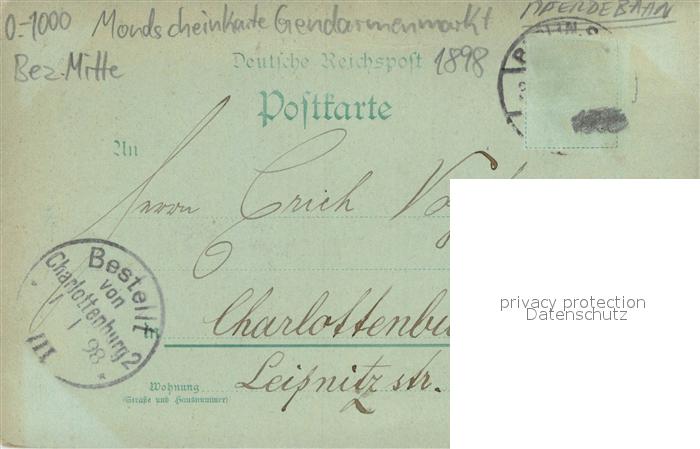 0.-1000 Mondscheinkarte Gendarmenmarkt PFERDEBAHN
Bez. Mitte
Deutsche Reichspost 1898
Postkarte
An
Herrn Erich
Bestellt
von
Charlottenburg 2
1 1 98
III
in Charlottenbu
Leipnitzstr.
Wohnung
(Straße und Hausnummer)
privacy protection
Datenschutz